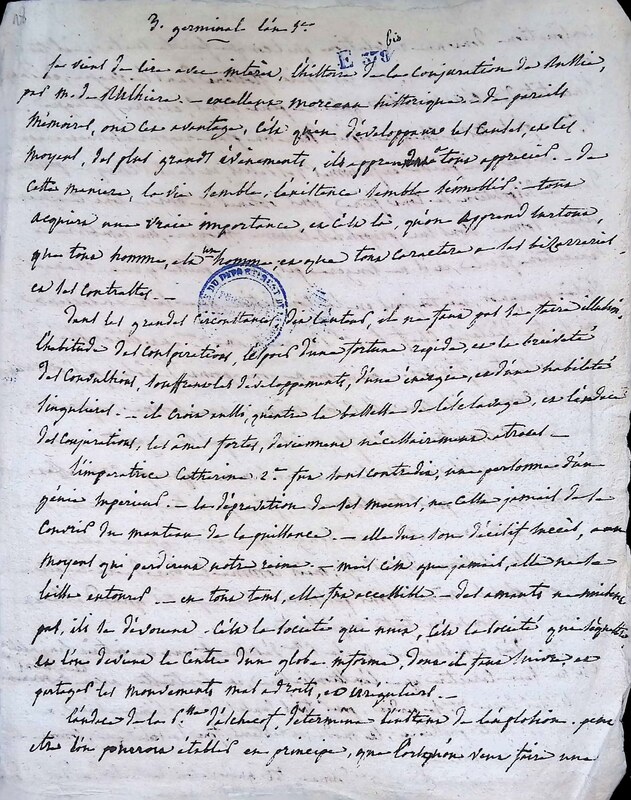 3. germinal l'an 5.e
E 378 bis
Je viens de lire avec intérêt, l'histoire de la conjuration de Russie,
par m. de Rulhiere. - excellent morceau historique. - de pareils
mémoires, ont cet avantage, c'est qu'en développant les causes, et les
moyens, des plus grands évènements, ils apprennent à tout apprécier. - de
cette maniere, la vie semble, l'existence semble - tout
acquiert une vraie importance, et c'est là, qu'on apprend surtout,
que tout homme, est un homme et que tout caractere a ses bizarreries
et ses contrastes. -
Dans les grandes circonstances d'un il ne faut pas se faire illusion.
l'habitude des conspirations, l'espoir d'une fortune rapide, et la brieveté
des convulsions, souffrent les développements, d'une énergie, et d'une habileté
singulieres. - il croit aussi, qu'entre la bassesse de l'esclavage, et l'audace
des conjurations, les âmes fortes, deviennent nécessairement atroces -
l'impératrice Catherine 2.e fut sans contredit, une personne d'un
génie supérieur. - la dépravation de ses moeurs, ne cessa jamais de se
couvrir du manteau de la puissance. - elle dut son décisif succès, aux
moyens qui perdirent notre reine. - mais c'est que jamais, elle ne se
laissa entourer - en tout tems, elle fut accessible. - des amants ne nuisent
pas, ils se dévouent. c'est la société qui nuit, c'est la société qui
et l'on devient le centre d'un globe informe, dont il faut suivre, et
partager les mouvements maladroits, et irréguliers. -
l'audace de la P.sse d'aschecof, détermina l'instant de l'explosion. peut
être l'on pourroit établir en principe, que lorsqu'on veut faire une